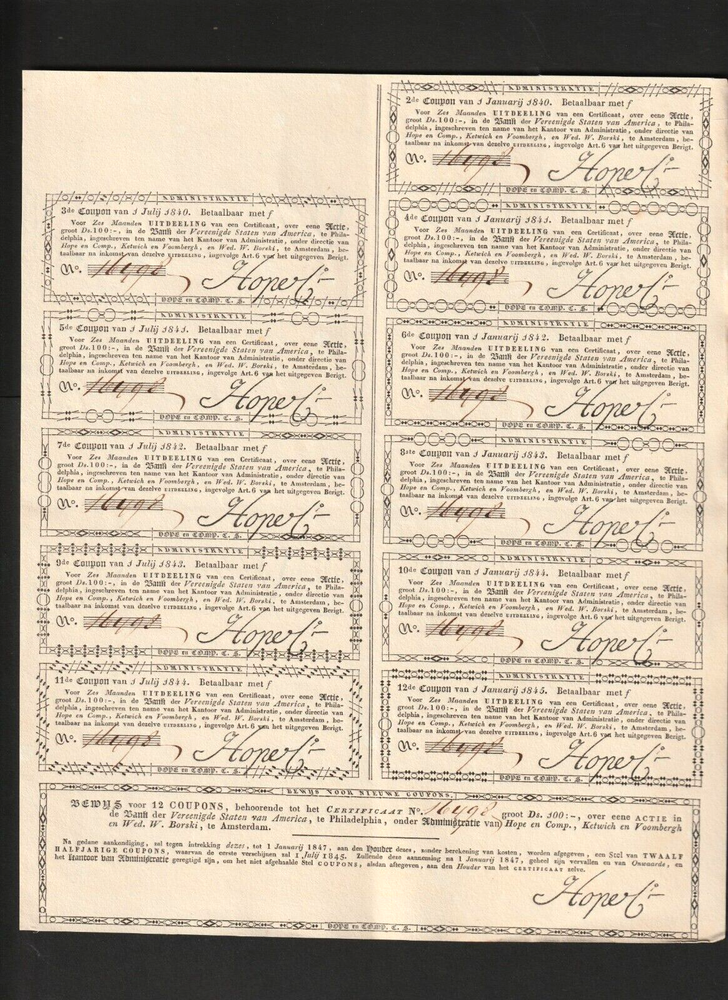 ADMINISTRATIE
2de Coupon van 1 Januarij 1840. Betaalbaar met f
Voor Zes Maanden UITDEELING van een Certificaat, over eene Actie,
groot Ds. 100:-, in de Bank der Vereenigde Staten van America, te Phila-
delphia, ingeschreven ten name van het Kantoor van Administratie, onder directie van
Hope en Comp., Ketwich en Voombergh, en Wed. W. Borski, te Amsterdam, be-
taalbaar na inkomst van dezelve UITDEELING, ingevolge Art. 6 van het uitgegeven Berigt.
No. 16798 Hope & Co.
HOPE en COMP. C. S.
ADMINISTRATIE
3de Coupon van 1 Julij 1840. Betaalbaar met f
Voor Zes Maanden UITDEELING van een Certificaat, over eene Actie,
groot Ds. 100:-, in de Bank der Vereenigde Staten van America, te Phila-
delphia, ingeschreven ten name van het Kantoor van Administratie, onder directie van
Hope en Comp., Ketwich en Voombergh, en Wed. W. Borski, te Amsterdam, be-
taalbaar na inkomst van dezelve UITDEELING, ingevolge Art. 6 van het uitgegeven Berigt.
No. 16798 Hope & Co.
HOPE en COMP. C. S.
ADMINISTRATIE
4de Coupon van 1 Januarij 1841. Betaalbaar met f
Voor Zes Maanden UITDEELING van een Certificaat, over eene Actie,
groot Ds. 100:-, in de Bank der Vereenigde Staten van America, te Phila-
delphia, ingeschreven ten name van het Kantoor van Administratie, onder directie van
Hope en Comp., Ketwich en Voombergh, en Wed. W. Borski, te Amsterdam, be-
taalbaar na inkomst van dezelve UITDEELING, ingevolge Art. 6 van het uitgegeven Berigt.
No. 16798 Hope & Co.
HOPE en COMP. C. S.
ADMINISTRATIE
5de Coupon van 1 Julij 1841. Betaalbaar met f
Voor Zes Maanden UITDEELING van een Certificaat, over eene Actie,
groot Ds. 100:-, in de Bank der Vereenigde Staten van America, te Phila-
delphia, ingeschreven ten name van het Kantoor van Administratie, onder directie van
Hope en Comp., Ketwich en Voombergh, en Wed. W. Borski, te Amsterdam, be-
taalbaar na inkomst van dezelve UITDEELING, ingevolge Art. 6 van het uitgegeven Berigt.
No. 16798 Hope & Co.
HOPE en COMP. C. S.
ADMINISTRATIE
6de Coupon van 1 Januarij 1842. Betaalbaar met f
Voor Zes Maanden UITDEELING van een Certificaat, over eene Actie,
groot Ds. 100:-, in de Bank der Vereenigde Staten van America, te Phila-
delphia, ingeschreven ten name van het Kantoor van Administratie, onder directie van
Hope en Comp., Ketwich en Voombergh, en Wed. W. Borski, te Amsterdam, be-
taalbaar na inkomst van dezelve UITDEELING, ingevolge Art. 6 van het uitgegeven Berigt.
No. 16798 Hope & Co.
HOPE en COMP. C. S.
ADMINISTRATIE
7de Coupon van 1 Julij 1842. Betaalbaar met f
Voor Zes Maanden UITDEELING van een Certificaat, over eene Actie,
groot Ds. 100:-, in de Bank der Vereenigde Staten van America, te Phila-
delphia, ingeschreven ten name van het Kantoor van Administratie, onder directie van
Hope en Comp., Ketwich en Voombergh, en Wed. W. Borski, te Amsterdam, be-
taalbaar na inkomst van dezelve UITDEELING, ingevolge Art. 6 van het uitgegeven Berigt.
No. 16798 Hope & Co.
HOPE en COMP. C. S.
ADMINISTRATIE
8ste Coupon van 1 Januarij 1843. Betaalbaar met f
Voor Zes Maanden UITDEELING van een Certificaat, over eene Actie,
groot Ds. 100:-, in de Bank der Vereenigde Staten van America, te Phila-
delphia, ingeschreven ten name van het Kantoor van Administratie, onder directie van
Hope en Comp., Ketwich en Voombergh, en Wed. W. Borski, te Amsterdam, be-
taalbaar na inkomst van dezelve UITDEELING, ingevolge Art. 6 van het uitgegeven Berigt.
No. 16798 Hope & Co.
HOPE en COMP. C. S.
ADMINISTRATIE
9de Coupon van 1 Julij 1843. Betaalbaar met f
Voor Zes Maanden UITDEELING van een Certificaat, over eene Actie,
groot Ds. 100:-, in de Bank der Vereenigde Staten van America, te Phila-
delphia, ingeschreven ten name van het Kantoor van Administratie, onder directie van
Hope en Comp., Ketwich en Voombergh, en Wed. W. Borski, te Amsterdam, be-
taalbaar na inkomst van dezelve UITDEELING, ingevolge Art. 6 van het uitgegeven Berigt.
No. 16798 Hope & Co.
HOPE en COMP. C. S.
ADMINISTRATIE
10de Coupon van 1 Januarij 1844. Betaalbaar met f
Voor Zes Maanden UITDEELING van een Certificaat, over eene Actie,
groot Ds. 100:-, in de Bank der Vereenigde Staten van America, te Phila-
delphia, ingeschreven ten name van het Kantoor van Administratie, onder directie van
Hope en Comp., Ketwich en Voombergh, en Wed. W. Borski, te Amsterdam, be-
taalbaar na inkomst van dezelve UITDEELING, ingevolge Art. 6 van het uitgegeven Berigt.
No. 16798 Hope & Co.
HOPE en COMP. C. S.
ADMINISTRATIE
11de Coupon van 1 Julij 1844. Betaalbaar met f
Voor Zes Maanden UITDEELING van een Certificaat, over eene Actie,
groot Ds. 100:-, in de Bank der Vereenigde Staten van America, te Phila-
delphia, ingeschreven ten name van het Kantoor van Administratie, onder directie van
Hope en Comp., Ketwich en Voombergh, en Wed. W. Borski, te Amsterdam, be-
taalbaar na inkomst van dezelve UITDEELING, ingevolge Art. 6 van het uitgegeven Berigt.
No. 16798 Hope & Co.
HOPE en COMP. C. S.
ADMINISTRATIE
12de Coupon van 1 Januarij 1845. Betaalbaar met f
Voor Zes Maanden UITDEELING van een Certificaat, over eene Actie,
groot Ds. 100:-, in de Bank der Vereenigde Staten van America, te Phila-
delphia, ingeschreven ten name van het Kantoor van Administratie, onder directie van
Hope en Comp., Ketwich en Voombergh, en Wed. W. Borski, te Amsterdam, be-
taalbaar na inkomst van dezelve UITDEELING, ingevolge Art. 6 van het uitgegeven Berigt.
No. 16798 Hope & Co.
HOPE en COMP. C. S.
BEWYS VOOR NIEUWE COUPONS.
BEWYS voor 12 COUPONS, behoorende tot het CERTIFICAAT No. 16798 groot Ds. 100:-, over eene ACTIE in
de Bank der Vereenigde Staten van America, te Philadelphia, onder Administratie van Hope en Comp., Ketwich en Voombergh
en Wed. W. Borski, te Amsterdam.
Na gedane aankondiging, zal tegen intrekking dezes, tot 1 January 1847, aan den Houder dezes, onder berekening van kosten, worden afgegeven, een Stel van TWAALF
HALFJARIGE COUPONS, waarvan de eerste verschijnen zal 1 July 1845. Zullende deze aanneming na 1 January 1847, geheel zijn vervallen en van Onwaarde, en
het Kantoor van Administratie geregtigd zijn, om het niet afgehaalde Stel COUPONS, alsdan aftegeven, aan den Houder van het CERTIFICAAT zelve.
Hope & Co.
HOPE en COMP. C. S.